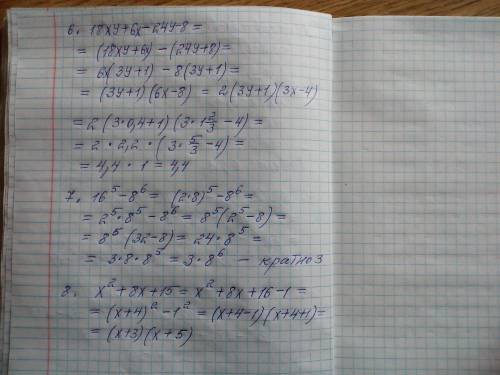 6. 18xy+6x-24y-8=
= (18xy+6x) - (24y+8)=
= 6x(3y+1) - 8(3y+1)=
= (3y+1)(6x-8) = 2(3y+1)(3x-4)
= 2(3·0,4+1)(3·1 2/3 -4)=
= 2·2,2·(3·5/3-4)=
= 4,4·1=4,4
7. 16⁵-8⁶= (2·8)⁵-8⁶=
= 2⁵·8⁵-8⁶=8⁵(2⁵-8)=
= 8⁵(32-8)=24·8⁵=
= 3·8·8⁵=3·8⁶ - кратно 3
8. x²+8x+15=x²+8x+16-1=
= (x+4)²-1²=(x+4-1)(x+4+1)=
= (x+3)(x+5)